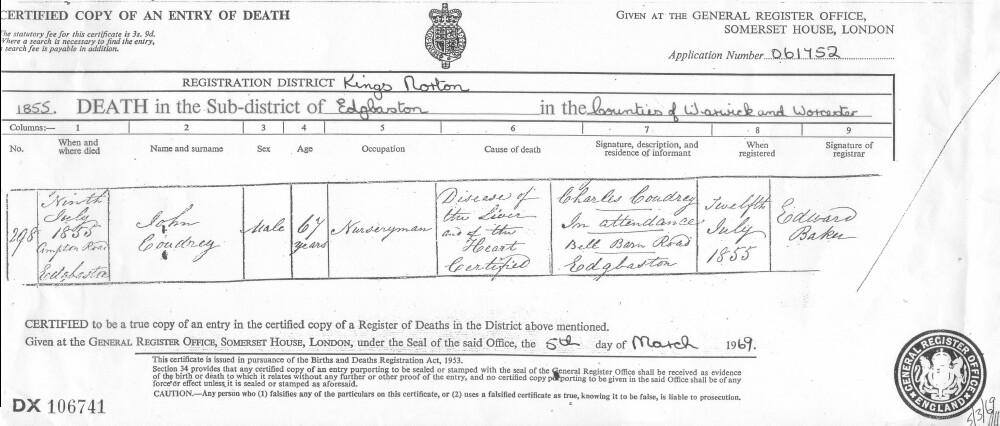 CERTIFIED COPY OF AN ENTRY OF DEATH
GIVEN AT THE GENERAL REGISTER OFFICE,
SOMERSET HOUSE, LONDON
The statutory fee for this certificate is 3s. 9d.
Where a search is necessary to find the entry,
a search fee is payable in addition.
Application Number 061752
REGISTRATION DISTRICT Kings Norton
1855. DEATH in the Sub-district of Edgbaston in the Counties of Warwick and Worcester
Columns:— 1 2 3 4 5 6 7 8 9
No. When and where died Name and surname Sex Age Occupation Cause of death Signature, description, and residence of informant When registered Signature of registrar
298
Ninth
July
1855
Road
Edgbaston
John
Coudrey
Male
67
years
Nurseryman
Disease of
the Liver
and of the
Heart
Certified
Charles Coudrey
In attendance
Bell Barn Road
Edgbaston
Twelfth
July
1855
Edward
Baker
CERTIFIED to be a true copy of an entry in the certified copy of a Register of Deaths in the District above mentioned.
Given at the GENERAL REGISTER OFFICE, SOMERSET HOUSE, LONDON, under the Seal of the said Office, the 5th day of March 1969.
This certificate is issued in pursuance of the Births and Deaths Registration Act, 1953.
Section 34 provides that any certified copy of an entry purporting to be sealed or stamped with the seal of the General Register Office shall be received as evidence
of the birth or death to which it relates without any further or other proof of the entry, and no certified copy purporting to be given in the said Office shall be of any
force or effect unless it is sealed or stamped as aforesaid.
CAUTION.—Any person who (1) falsifies any of the particulars on this certificate, or (2) uses a falsified certificate as true, knowing it to be false, is liable to prosecution.
DX 106741
GENERAL REGISTER OFFICE
ENGLAND
5/3/69